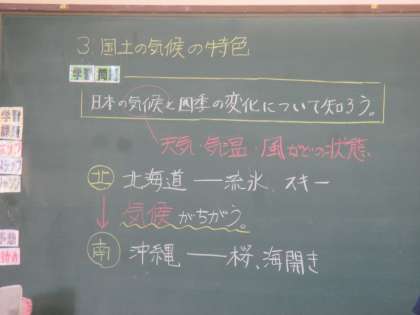 3. 国土の気候の特色
学習 問
日本の気候と四季の変化について知ろう。
天気・気温・風などの状態
北 北海道 ― 流氷、スキー
気候がちがう。
南 沖縄 ― 桜、海開き